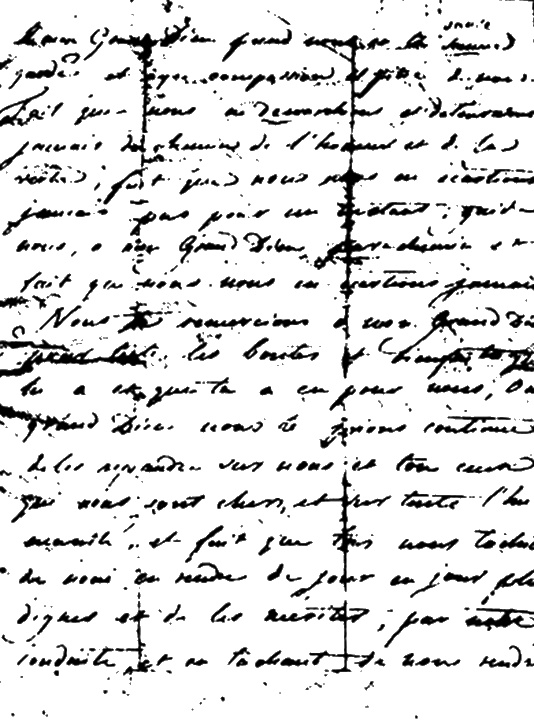 mon Grand Dieu prend nous en ta sainte
garde et aye compassion et pitié de nous
fait que nous ne demarchions et detournions
jamais du chemin de l'honneur et de la
verité, fait que nous nous en écartions
jamais pas pour un instant, guide
nous, o mon Grand Dieu par chemin et
fait que nous nous en écartions jamais
Nous te remercions o mon Grand Di
les bontés et bienfaits que
tu a et que tu a eu pour nous, O
grand Dieu nous te prions continue
de les repandre sur nous et tous ceux
que nous sont chers, et sur toute l'hu
manité, et fait que tous nous tachi
de nous en rendre de jour en jour plu
dignes et de les meriter, par notre
conduite et en tachant de nous rendr